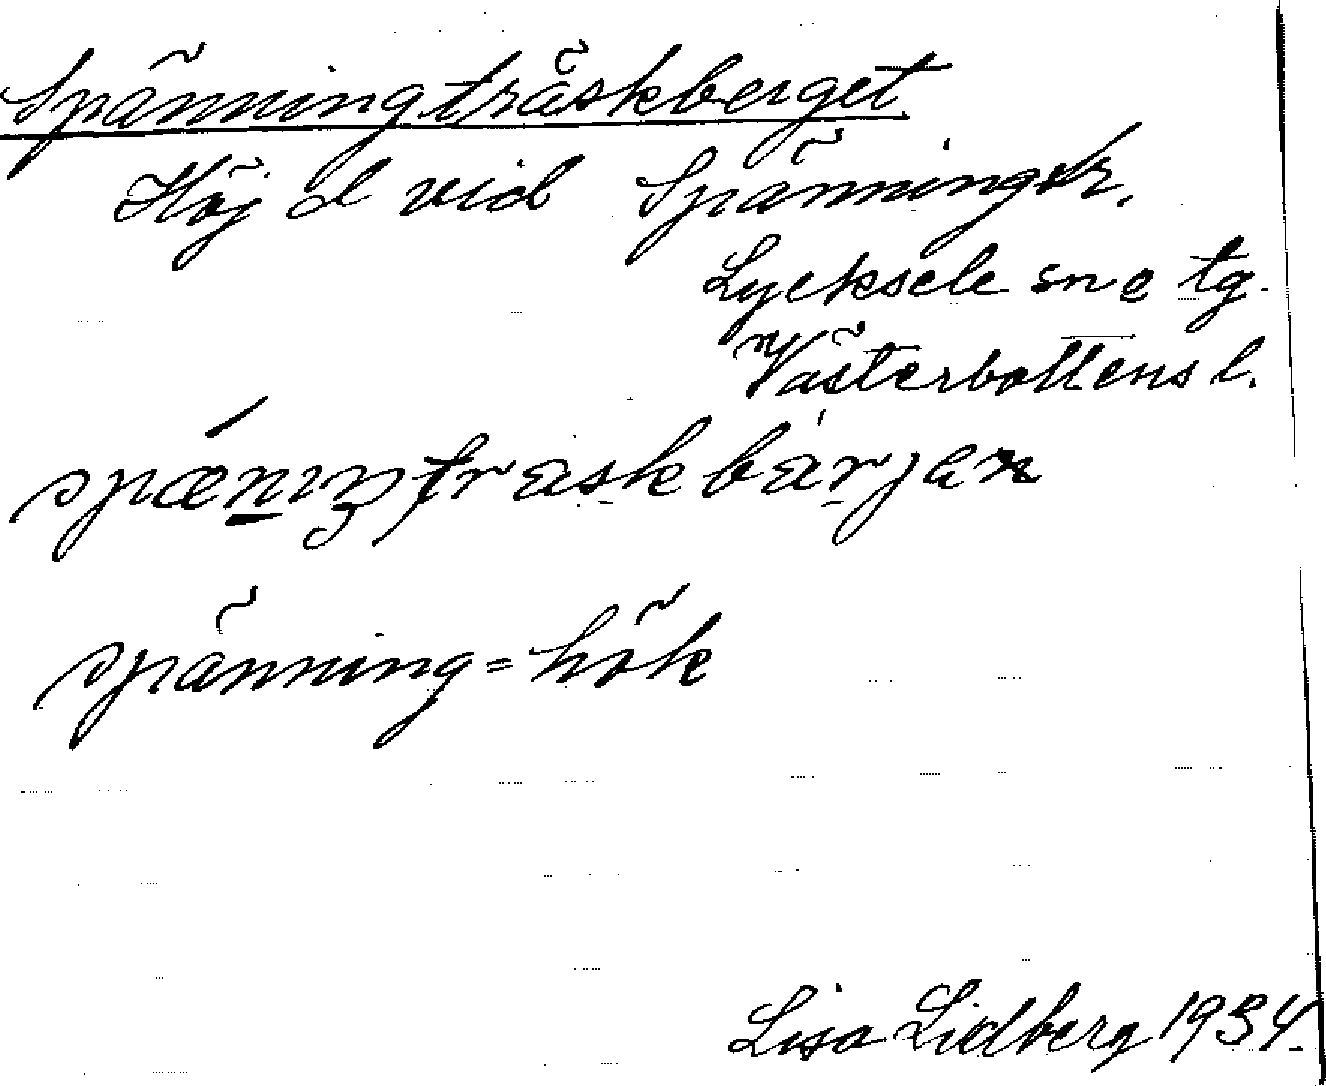 Spänningträskberget
Höjd vid Spänningtr.
Lycksele sn o tg.
Västerbottens l.
spänning = hök
Lisa Lidberg 1934.